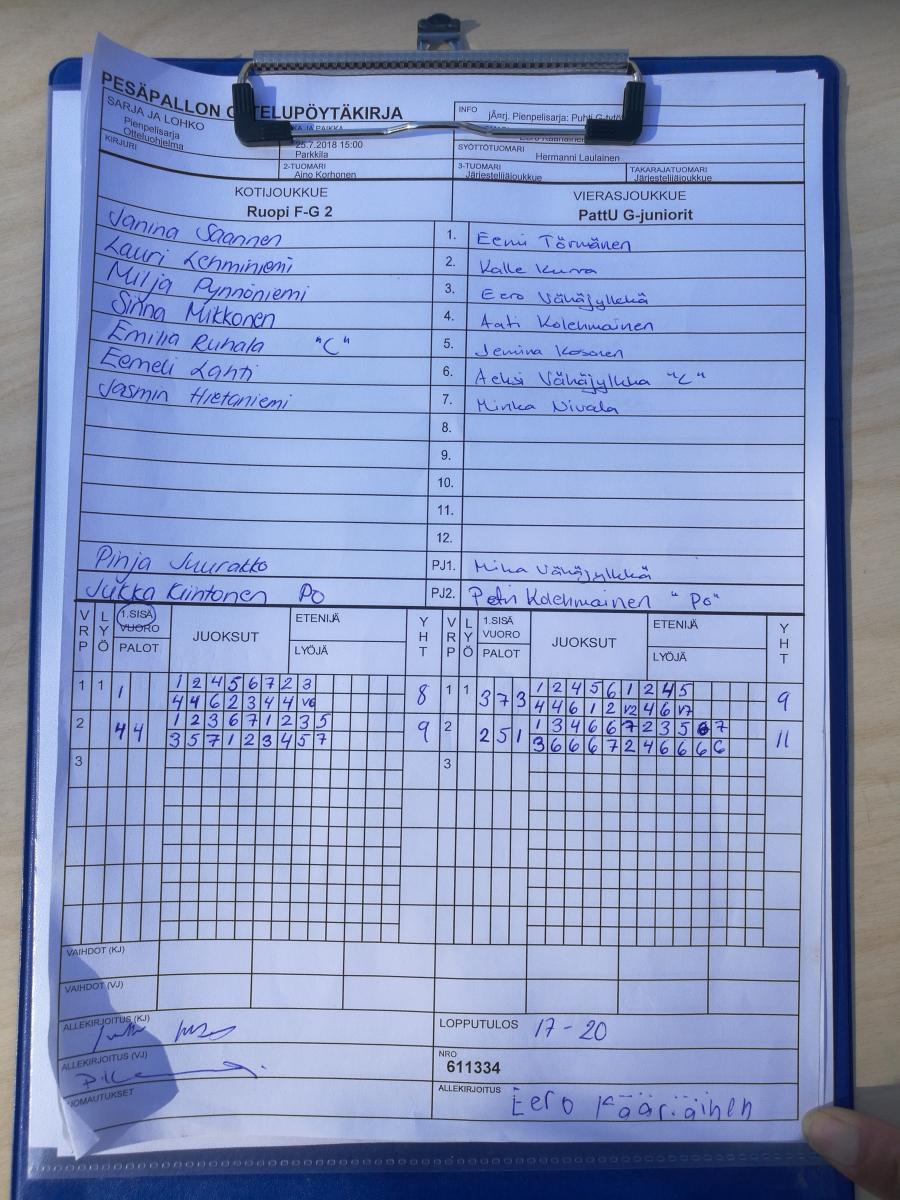 PESÄPALLON OTTELUPÖYTÄKIRJA
SARJA JA LOHKO
Pienpelisarja
Otteluohjelma
KIRJURI
AIKA JA PAIKKA
25.7.2018 15:00
Parkkila
2-TUOMARI
Aino Korhonen
INFO
jÄ¤rj. Pienpelisarja: Puhti G-tytö
SYÖTTÖTUOMARI
Hermanni Laulainen
3-TUOMARI
Järjestelijäjoukkue
TAKARAJATUOMARI
Järjestelijäjoukkue
KOTIJOUKKUE
Ruopi F-G 2
VIERASJOUKKUE
PattU G-juniorit
Janina Saannen 1. Eemi Törmänen
Lauri Lehminiemi 2. Kalle Kurra
Milja Pynnöniemi 3. Eero Vähäjylkkä
Sinna Mikkonen 4. Aati Kolehmainen
Emilia Ruhala "C" 5. Jemina Kosonen
Eemeli Lahti 6. Aeksi Vähäjylkkä "C"
Jasmin Hietaniemi 7. Minka Nivala
8.
9.
10.
11.
12.
Pinja Juurakko PJ1. Mika Vähäjylkkä
Jukka Kiintonen Po PJ2. Petri Kolehmainen "Po"
VRP LYÖ 1.SISÄ VUORO PALOT JUOKSUT ETENIJÄ LYÖJÄ YHT VRP LYÖ 1.SISÄ VUORO PALOT JUOKSUT ETENIJÄ LYÖJÄ YHT
1 1 1 1 2 4 5 6 7 2 3 8 1 1 3 7 3 1 2 4 5 6 1 2 4 5 9
4 4 6 2 3 4 4 V6 4 4 6 1 2 V2 4 6 V7
2 4 4 1 2 3 6 7 1 2 3 5 9 2 2 5 1 1 3 4 6 6 7 2 3 5 6 7 11
3 5 7 1 2 3 4 5 7 3 6 6 6 7 2 4 6 6 6 6
3 3
VAIHDOT (KJ)
VAIHDOT (VJ)
ALLEKIRJOITUS (KJ)
LOPPUTULOS 17-20
ALLEKIRJOITUS (VJ)
NRO
611334
HUOMAUTUKSET
ALLEKIRJOITUS
Eero Kääriäinen